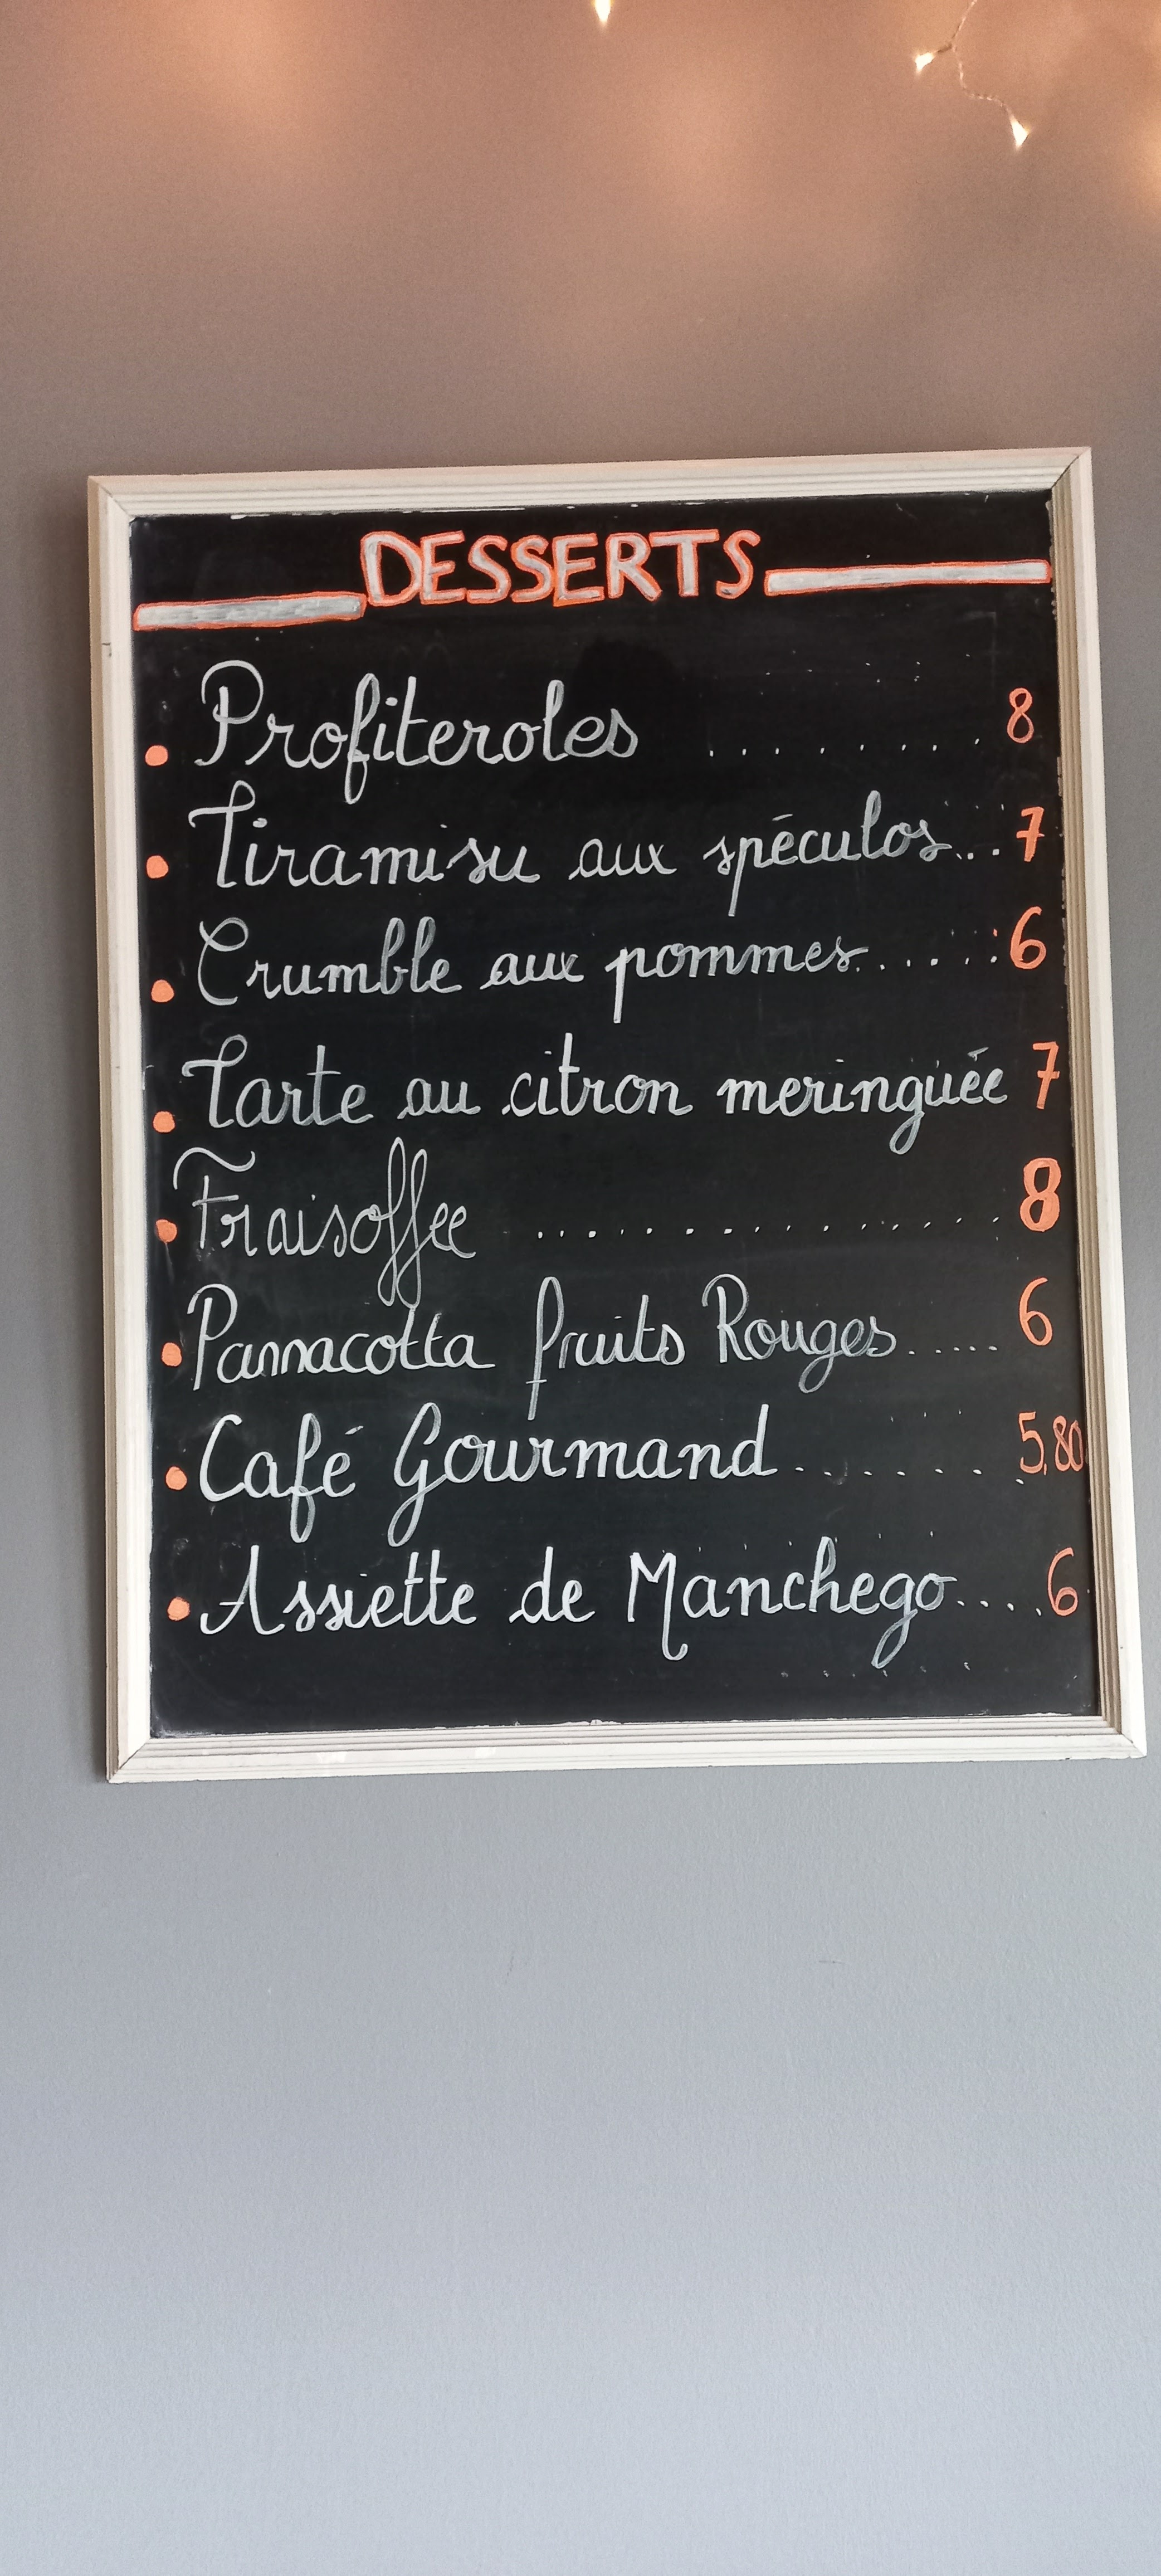 DESSERTS
• Profiteroles ......... 8
• Tiramisu aux spéculos... 7
• Crumble aux pommes...... 6
• Tarte au citron meringuée 7
• Fraisoffee .............. 8
• Pannacotta fruits Rouges..... 6
• Café Gourmand....... 5,80
• Assiette de Manchego.... 6